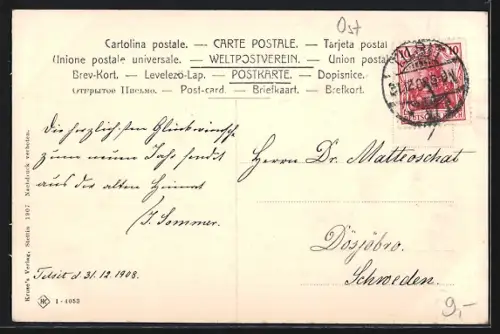 Ost
Cartolina postale. — CARTE POSTALE. — Tarjeta postal
Unione postale universale. — WELTPOSTVEREIN. — Union postale
Brev-Kort. — Levelező-Lap. — POSTKARTE. — Dopisnice.
Открытое Письмо. — Post-card. — Briefkaart. — Brefkort.
10 10
Die herzlichsten Glückwünsche
zum neuen Jahr sendet
aus der alten Heimat
J. Sommer.
Tilsit d 31.12.1908.
Herrn Dr. Matteoschat
Dösjöbro.
Schweden.
Kruse's Verlag, Stettin 1907 Nachdruck verboten.
I - 4053
9,-